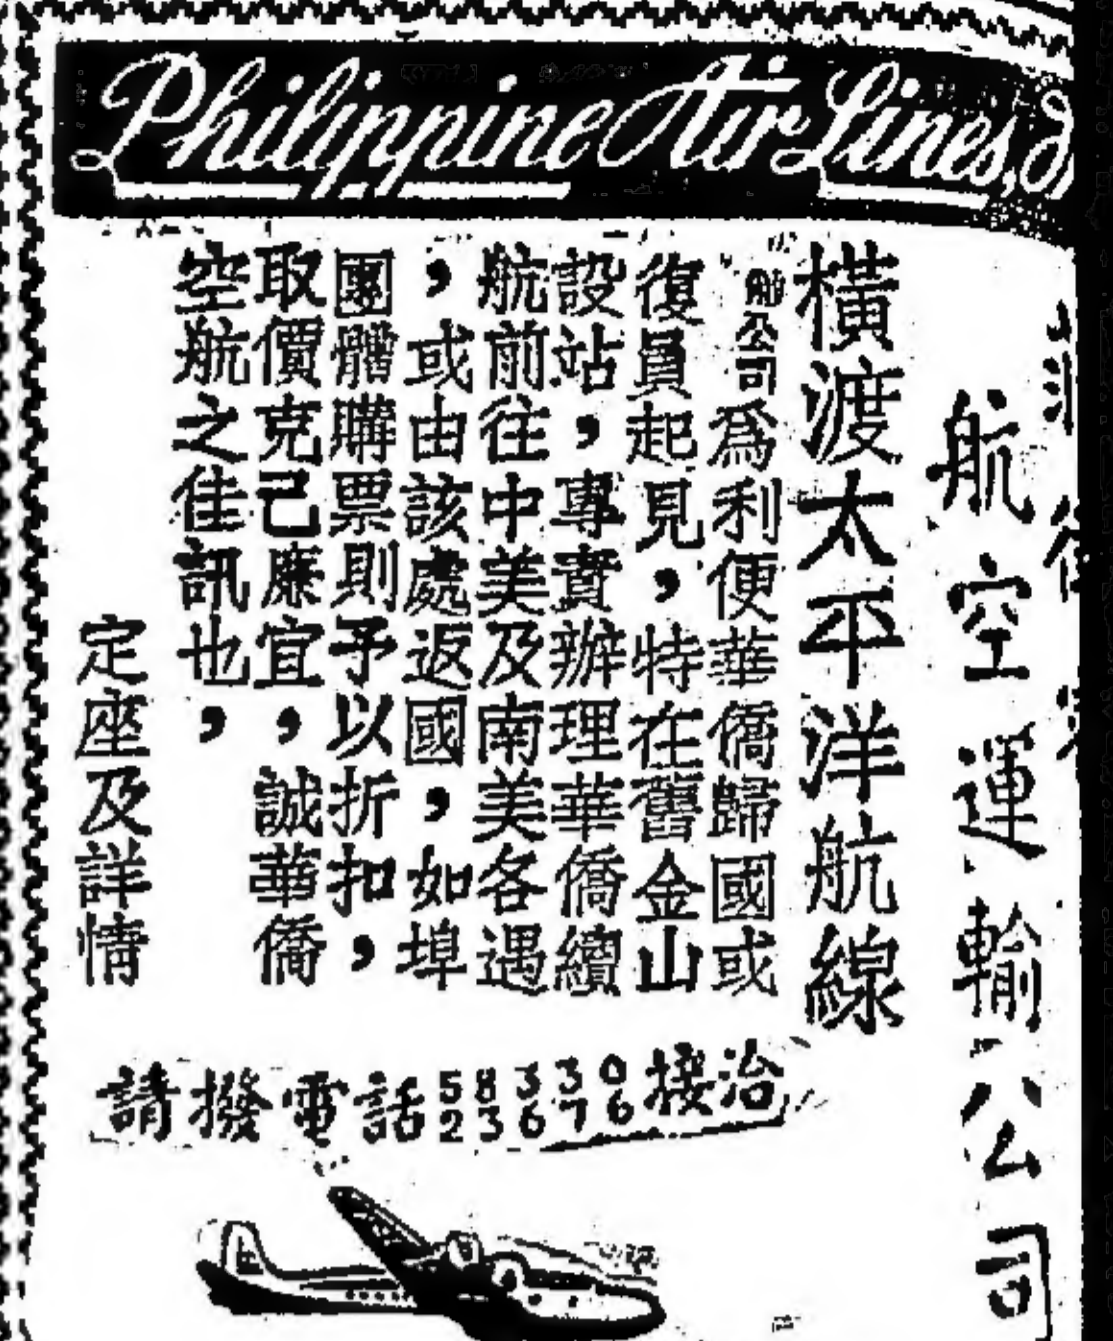 Philippine Air Lines,
航空運輸公司
橫渡太平洋航線
船公司爲利便華僑歸國或
復員起見，特在舊金山
設站，專責辦理華僑續
航前往中美及南美各遇
，或由該處返國，如埠
團體購票則予以折扣，
取價克己應宜，誠華僑
空航之佳訊也，
定座及詳情
請撥電話 58330 接洽
23676